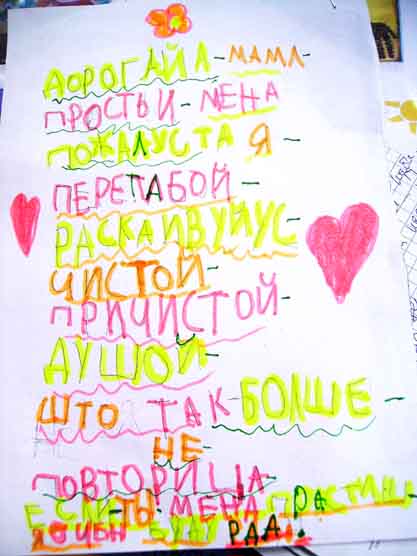 ДОРОГАЙА-МАМА-
ПРОСТЬИ-МЕНА
ПОЖАЛУСТА Я-
ПЕРЕТАБОЙ-
РАСКАИВУЙУС-
ЧИСТОЙ-
ПРИЧИСТОЙ-
ДУШОЙ-
ШТО ТАК-БОЛШЕ-
НЕ-
ПОВТОРИЦА-
ЕСЛИ-ТЫ-МЕНА
БУДУ РАДА!